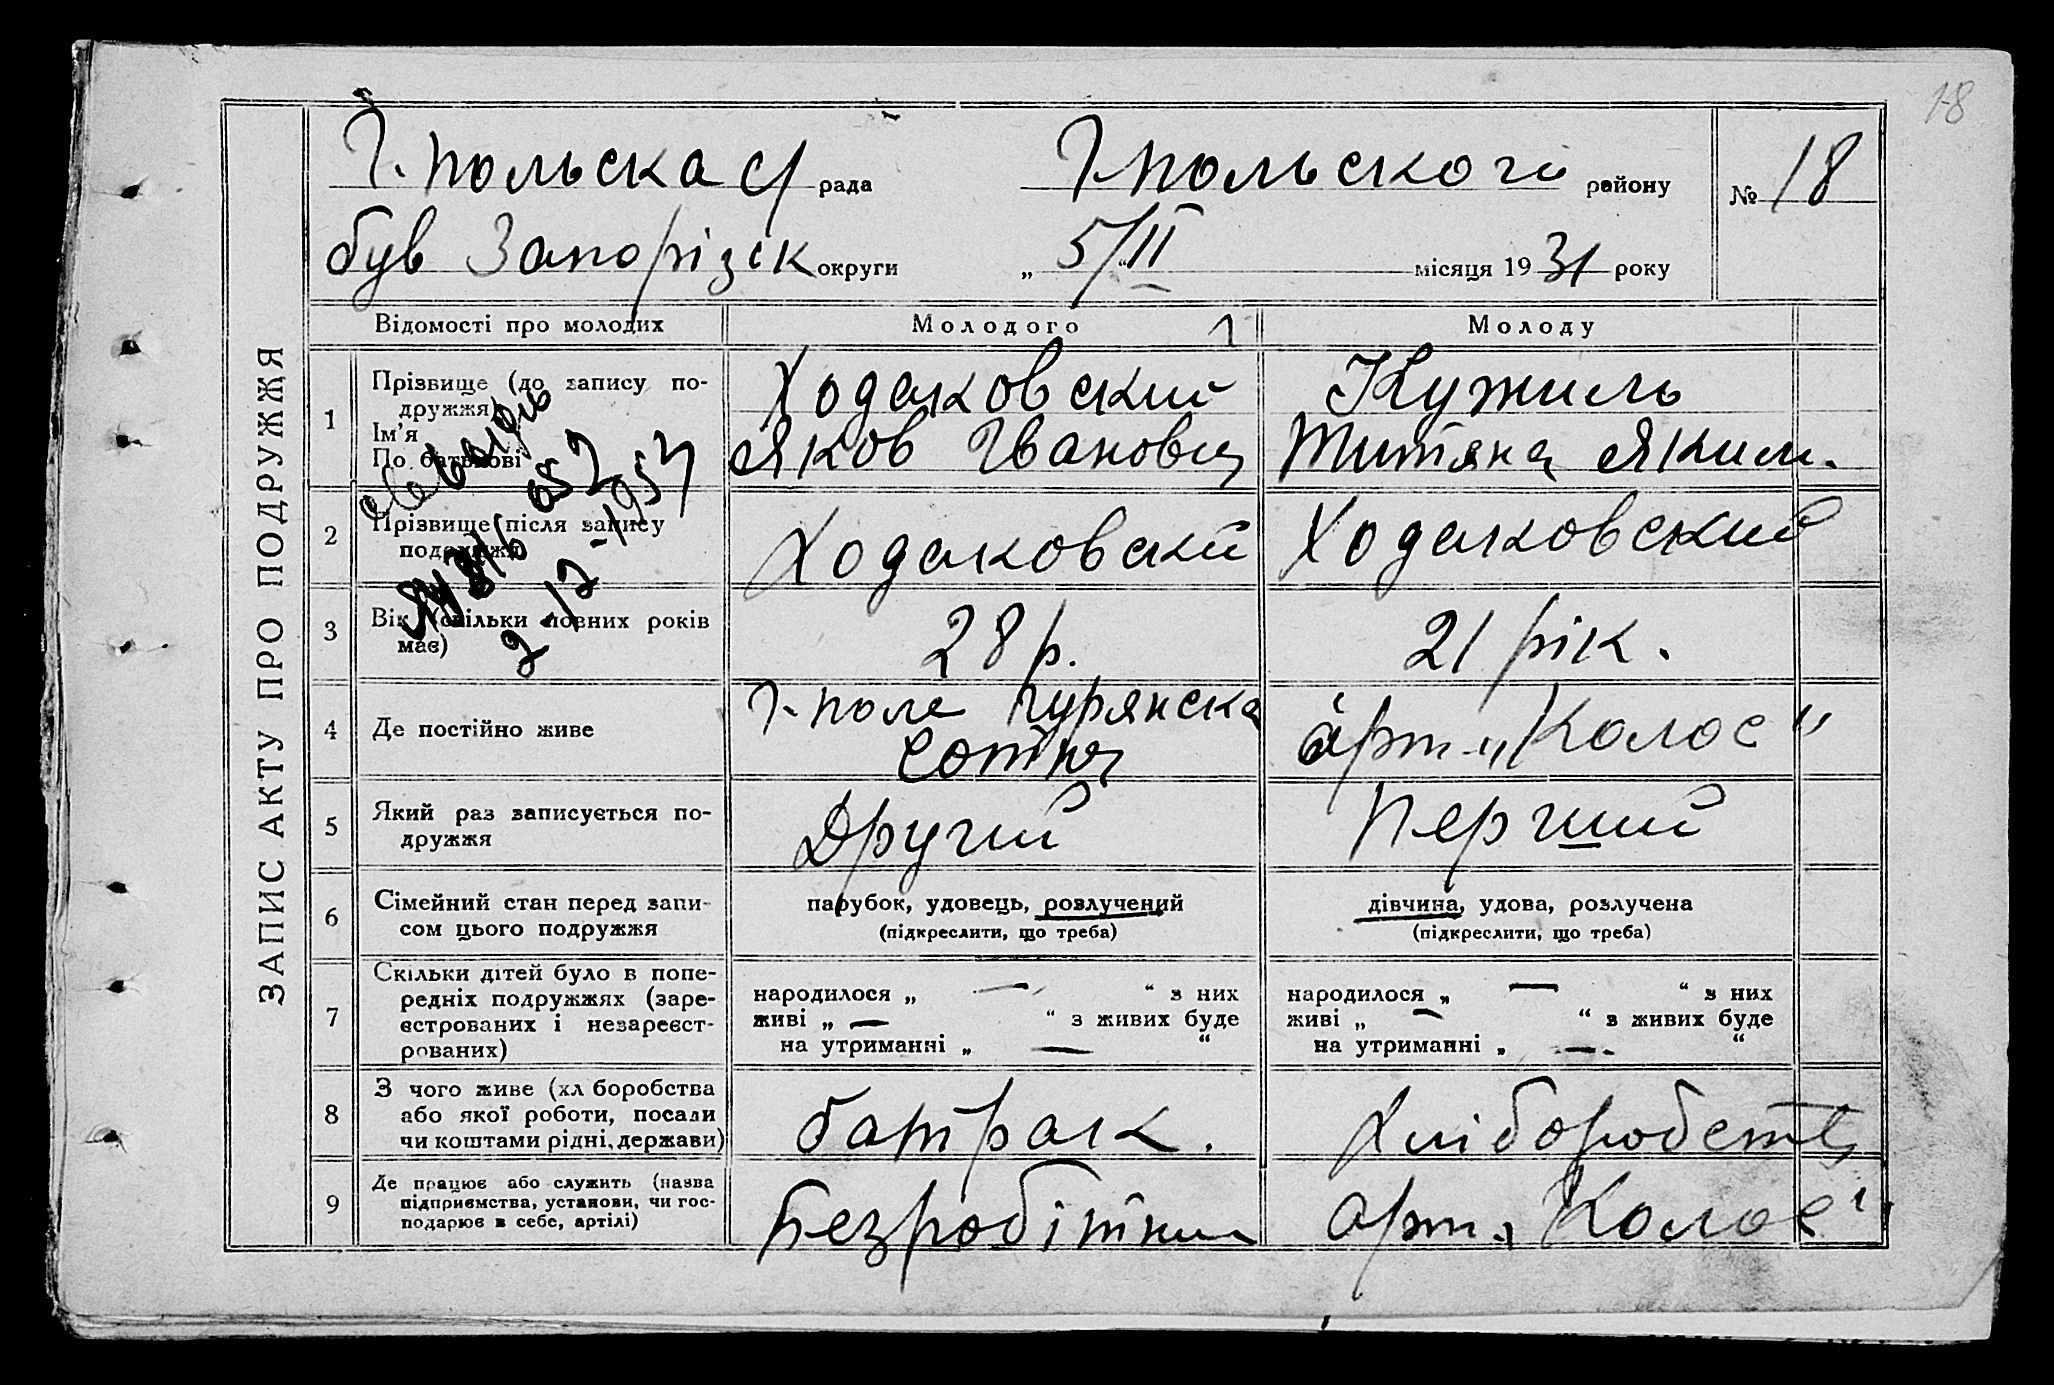 18
Г. польска с/рада
Г-польского району
№ 18
був Запорізск округи
„ 5/II “ місяця 1931 року
ЗАПИС АКТУ ПРО ПОДРУЖЖЯ
Відомості про молодих
Молодого
1
Молоду
1
Прізвище (до запису по-
дружжя)
Ім’я
По батькові
Ходаковский
Яков Іванович
Кужиль
Титяна Яким.
2
Прізвище після запису
подружжя
Ходаковский
Ходаковский
3
Вік (скільки повних років
має)
28 р.
21 рік.
2-12-1957
4
Де постійно живе
Г-поле Гурянска
сотня
арт. „Колос”
5
Який раз записується по-
дружжя
Другий
Перший
6
Сімейний стан перед запи-
сом цього подружжя
парубок, удовець, розлучений
(підкреслити, що треба)
дівчина, удова, розлучена
(підкреслити, що треба)
7
Скільки дітей було в попе-
редніх подружжях (заре-
єстрованих і незареєст-
рованих)
народилося „ — “ з них
живі „ — “ з живих буде
на утриманні „ — “
народилося „ — “ з них
живі „ — “ з живих буде
на утриманні „ — “
8
З чого живе (хл боробства
або якої роботи, посади
чи коштами рідні, держави)
батрак.
Хліборобств
9
Де працює або служить (назва
підприємства, установи, чи гос-
подарює в себе, артілі)
Безробітний
Арт. „Колос“